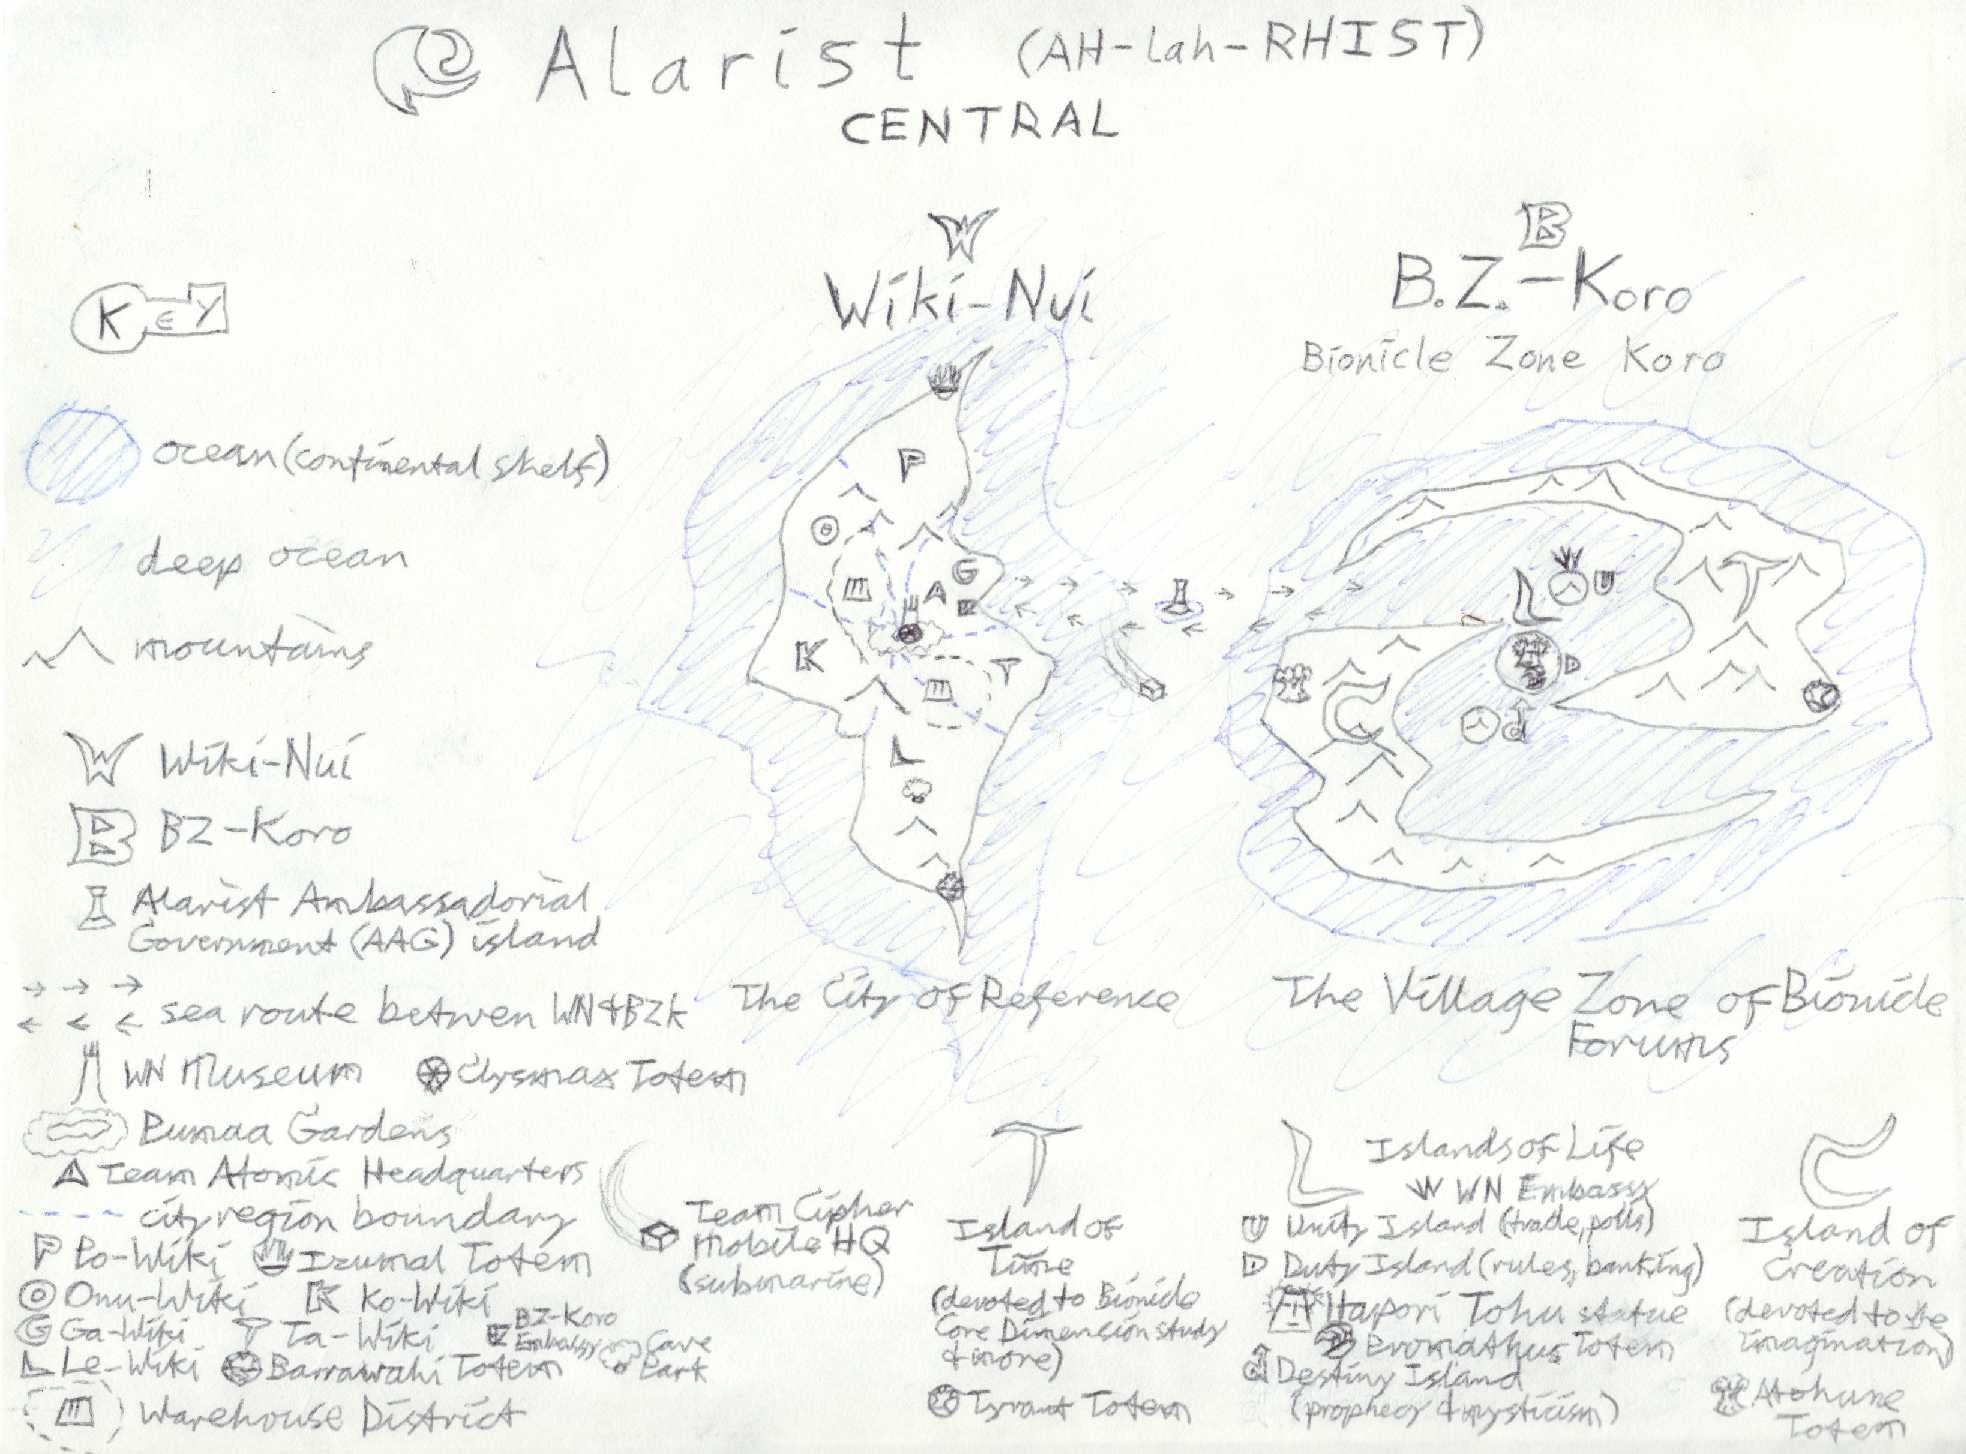 Alarist (AH-lah-RHIST)
CENTRAL
W
Wiki-Nui
B
B.Z.-Koro
Bionicle Zone Koro
KEY
ocean (continental shelf)
deep ocean
mountains
W Wiki-Nui
B BZ-Koro
Alarist Ambassadorial
Government (AAG) island
sea route between WN & BZK
WN Museum
Clysmax Totem
Bumaa Gardens
A Team Atomic Headquarters
city region boundary
P Po-Wiki
Irumal Totem
Onu-Wiki
K Ko-Wiki
G Ga-Wiki
T Ta-Wiki
BZ-Koro
Embassy
Cave
Park
L Le-Wiki
Barrawahi Totem
Warehouse District
P
G
A
K
T
L
T
L
U
D
C
d
The City of Reference
The Village Zone of Bionicle
Forums
Team Cipher
Mobile HQ
(submarine)
T
Island of
Time
(devoted to Bionicle
Core Dimension study
& more)
Tyrant Totem
L
Islands of Life
W WN Embassy
U Unity Island (trade, polls)
D Duty Island (rules, banking)
Hapori Tohu statue
Bromidthus Totem
d Destiny Island
(prophecy & mysticism)
C
Island of
Creation
(devoted to the
imagination)
Atohune
Totem